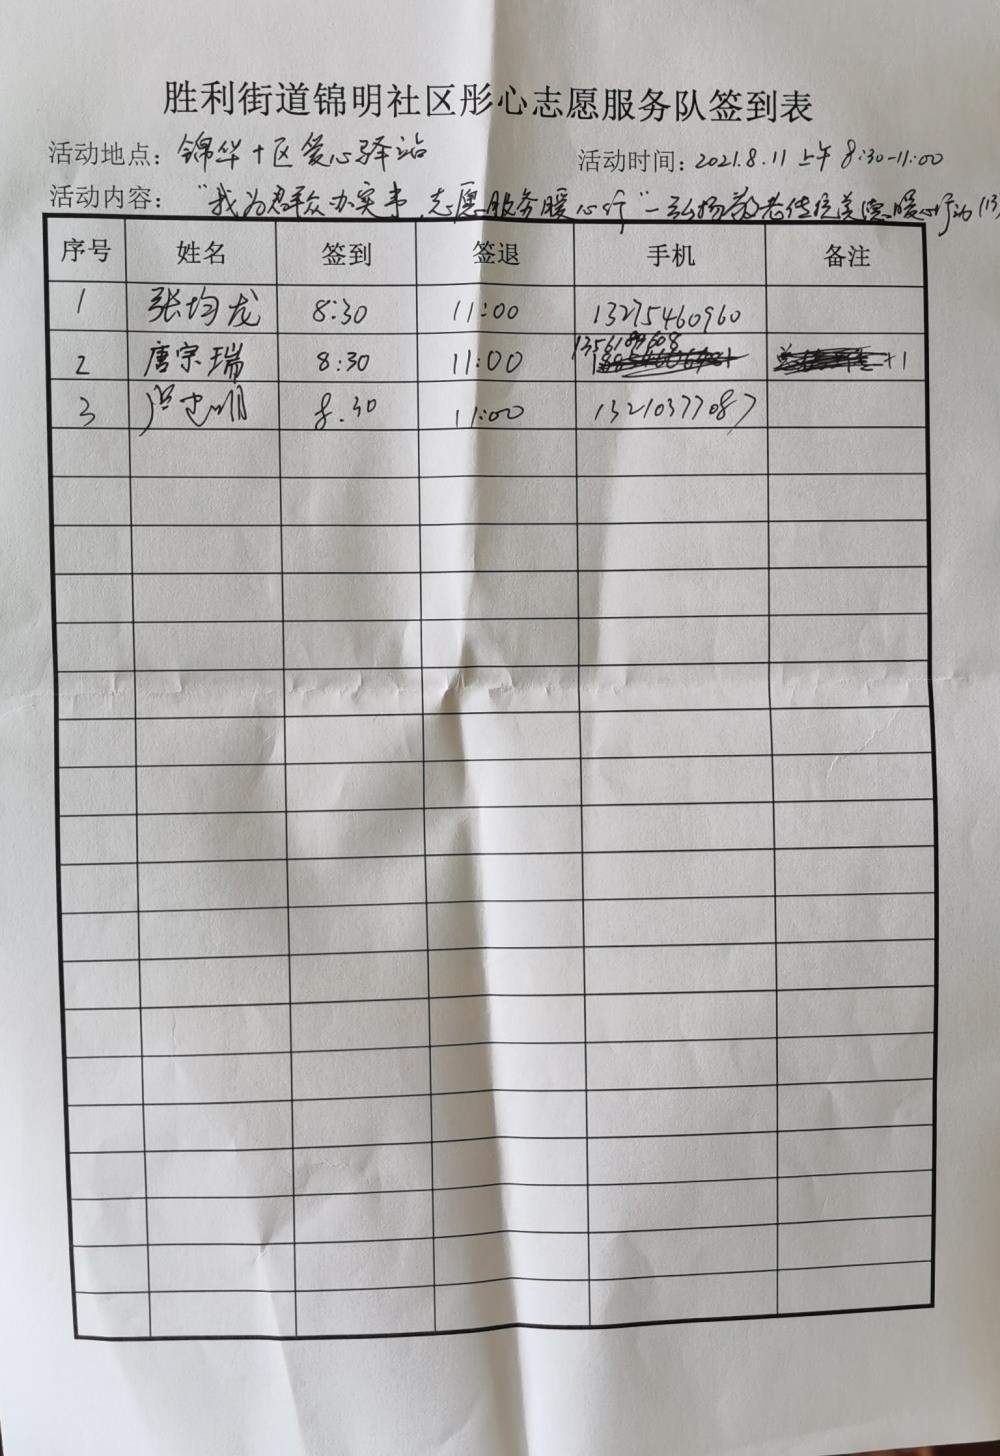 胜利街道锦明社区彤心志愿服务队签到表
活动地点：锦华十区爱心驿站 活动时间：2021.8.11 上午 8:30-11:00
活动内容：“我为群众办实事，志愿服务暖心行”—弘扬敬老传统美德暖心行动
序号 姓名 签到 签退 手机 备注
1 张均龙 8:30 11:00 13275460960
2 唐宗瑞 8:30 11:00 +1
3 明 8.30 11:00 13210377087